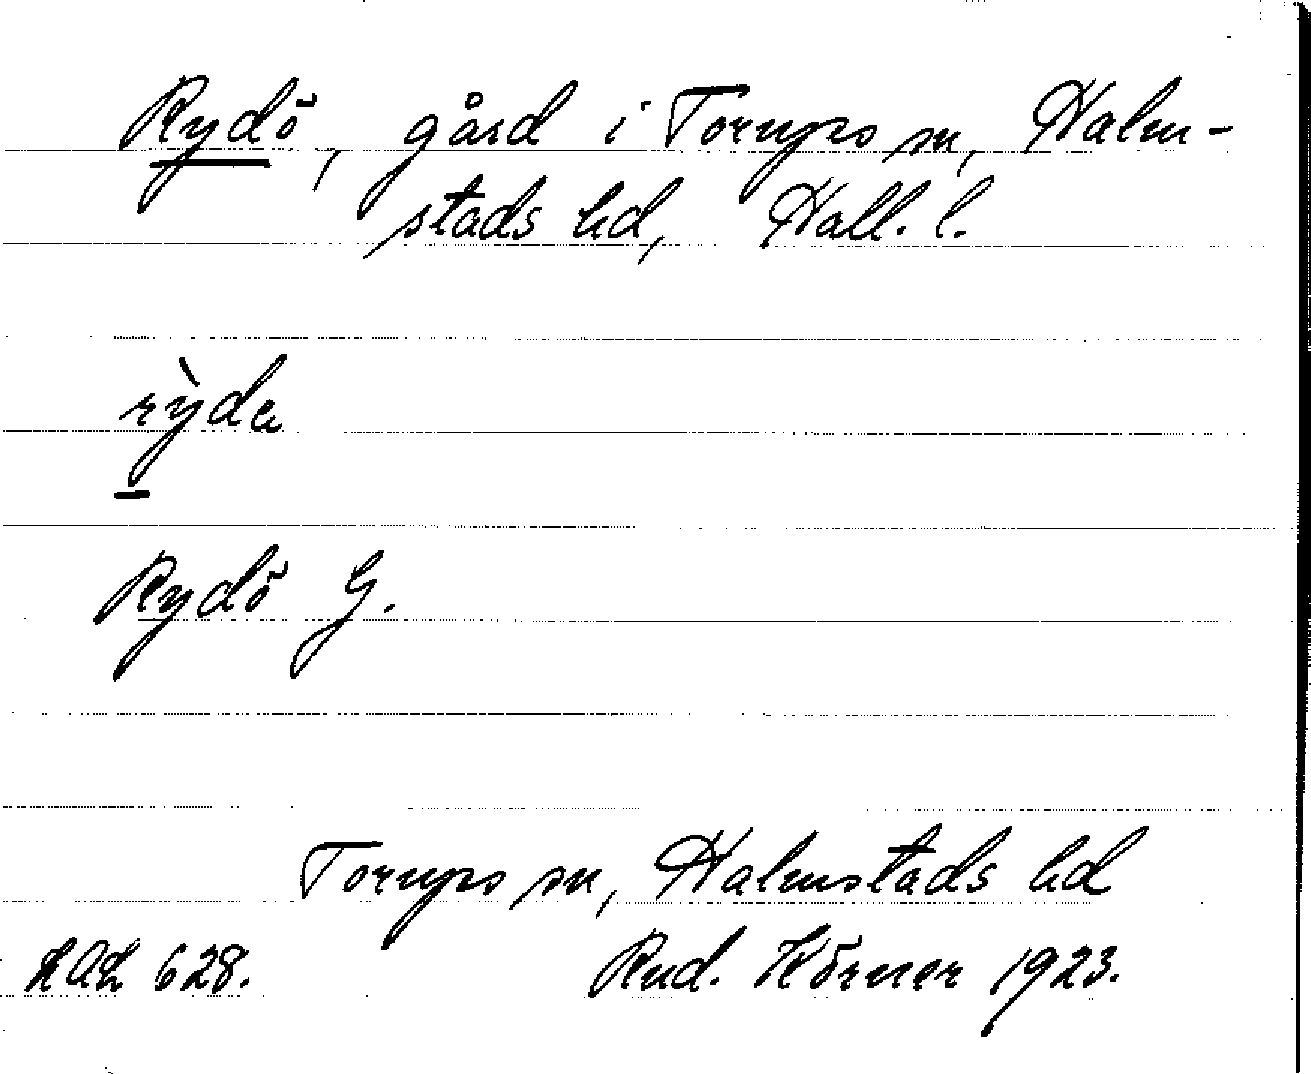 Rydö, gård i Torups sn, Halm-
stads hd, Hall. l.
rỳdə
Rydö G.
Torups sn, Halmstads hd
LAL 628. Rud. Körner 1923.